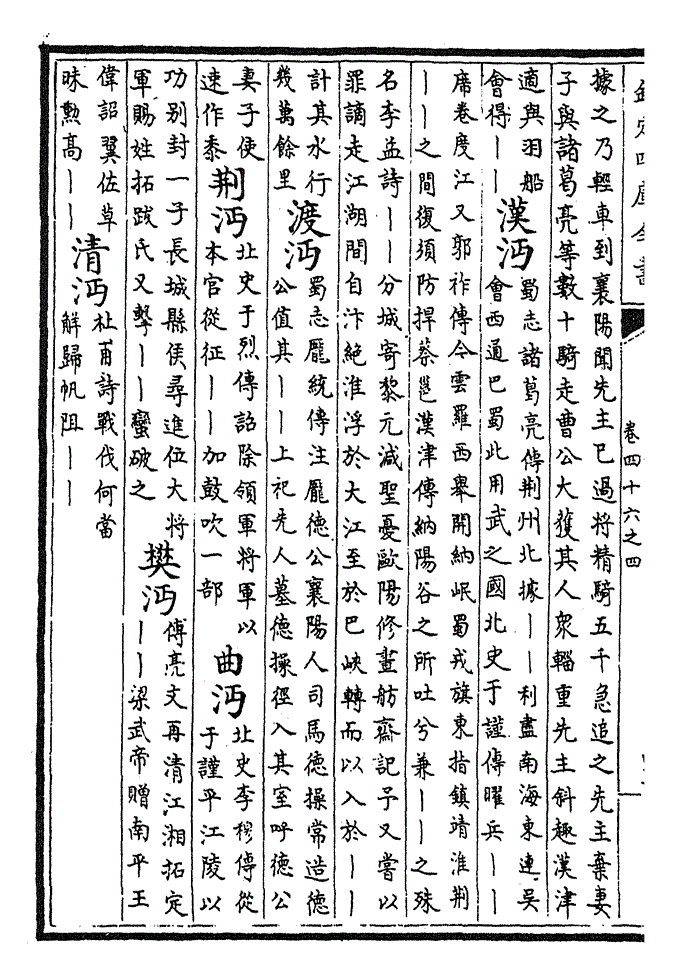 欽定四庫全書
卷四十六之四
據之乃輕車到襄陽聞先主已過將精騎五千急追之先主棄妻
子與諸葛亮等數十騎走曹公大獲其人衆輜重先主斜趣漢津
適與羽船
會得丨丨
漢沔
蜀志諸葛亮傳荆州北據丨丨利盡南海東連吳
會西通巴蜀此用武之國北史于謹傳曜兵丨丨
席卷度江又郭祚傳今雲羅西舉開納岷蜀戎旗東指鎮靖淮荆
丨丨之間復須防捍蔡邕漢津傳納陽谷之所吐兮兼丨丨之殊
名李益詩丨丨分城寄黎元減聖憂歐陽修畫舫齋記予又嘗以
罪謫走江湖間自汴絕淮浮於大江至於巴峽轉而以入於丨丨
計其水行
幾萬餘里
渡沔
蜀志龐統傳注龐德公襄陽人司馬德操常造德
公值其丨丨上祀先人墓德操徑入其室呼德公
妻子使
速作黍
荆沔
北史于烈傳詔除領軍將軍以
本官從征丨丨加鼓吹一部
曲沔
北史李穆傳從
于謹平江陵以
功别封一子長城縣侯尋進位大將
軍賜姓拓跋氏又擊丨丨蠻破之
樊沔
傅亮文再清江湘拓定
丨丨梁武帝贈南平王
偉詔翼佐草
昧勲高丨丨
清沔
杜甫詩戰伐何當
解歸帆阻丨丨